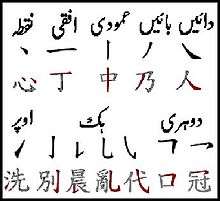 دائیں بائیں عمودی افقی نقطہ
丶 一 丨 丿 ㇏
心 丁 中 乃 人
دوہری ہک اوپر
㇀ 亅 ㇙ ㇟ ㇂ ㇕ ㇖
洗 別 晨 亂 代 口 冠